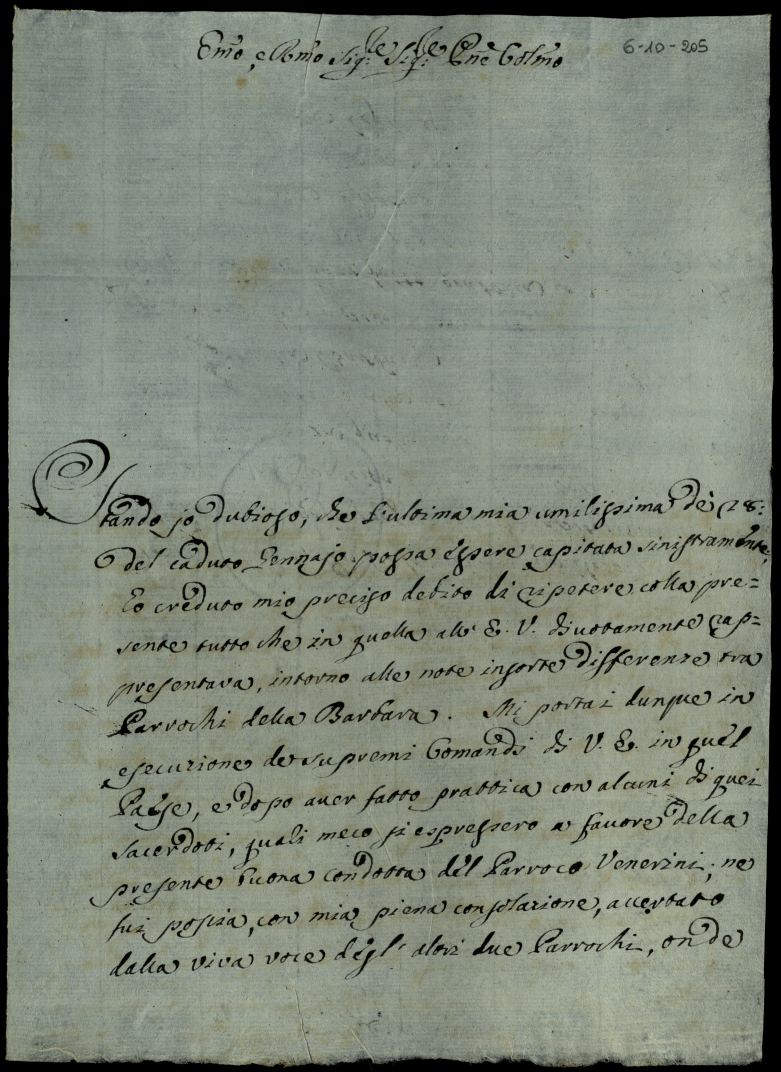 Emo, e Rmo Sigre Sigre Pne Colmo
6-10-205
Stando jo dubioso, che l'ultima mia umilissima de' 28:
del caduto Gennajo possa essere capitata sinistramente,
Eo creduto mio preciso debito di ripetere colla pre=
sente tutto che in quella all' E. V. divotamente rap=
presentava, intorno alle note insorte differenze tra
Parrochi della Barbara. Mi portai dunque in
esecuzione de' supremi Comandi di V. E. in quel
Paese, e dopo aver fatto prattica con alcuni di quei
Sacerdoti, quali meco si espressero a favore della
presente buona condotta del Parroco Venerini, ne
fui poscia, con mia piena consolazione, accertato
dalla viva voce degl' altri due Parrochi, onde